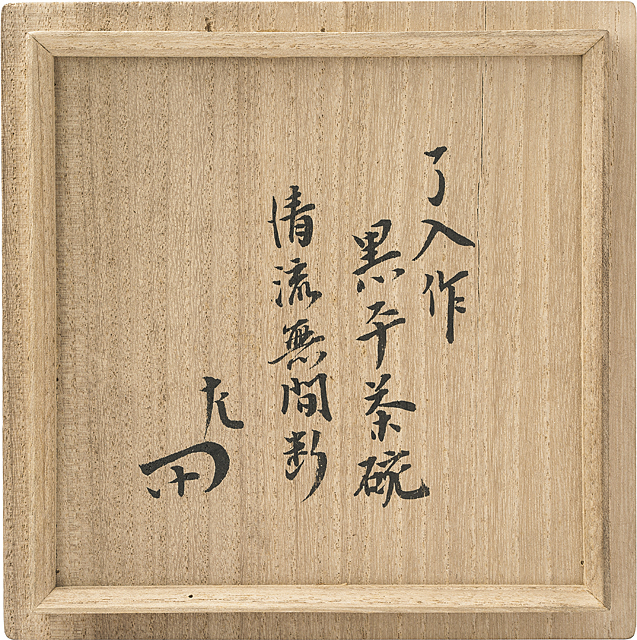 了入作
黒平茶碗
清流無間断
左